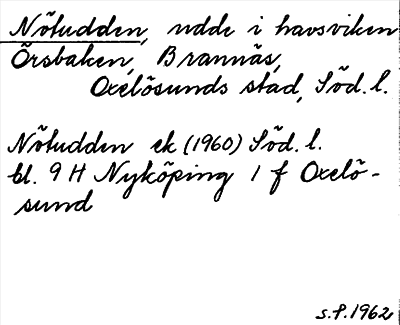 Nötudden, udde i havsviken
Örsbaken, Brannäs,
Oxelösunds stad, Söd. l.
Nötudden ek (1960) Söd. l.
bl. 9 H Nyköping 1 f Oxelö-
sund
s.P. 1962